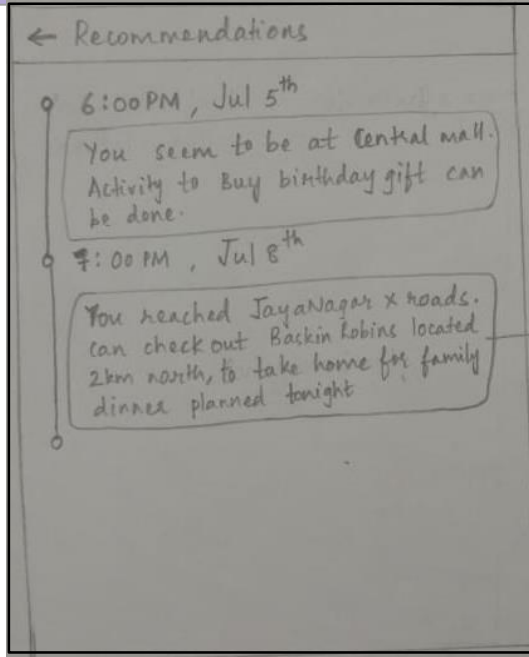 ← Recommendations
6:00 PM, Jul 5th
You seem to be at Central mall.
Activity to Buy birthday gift can
be done.
7:00 PM, Jul 8th
You reached JayaNagar X roads.
can check out Baskin Robins located
2km north, to take home for family
dinner planned tonight